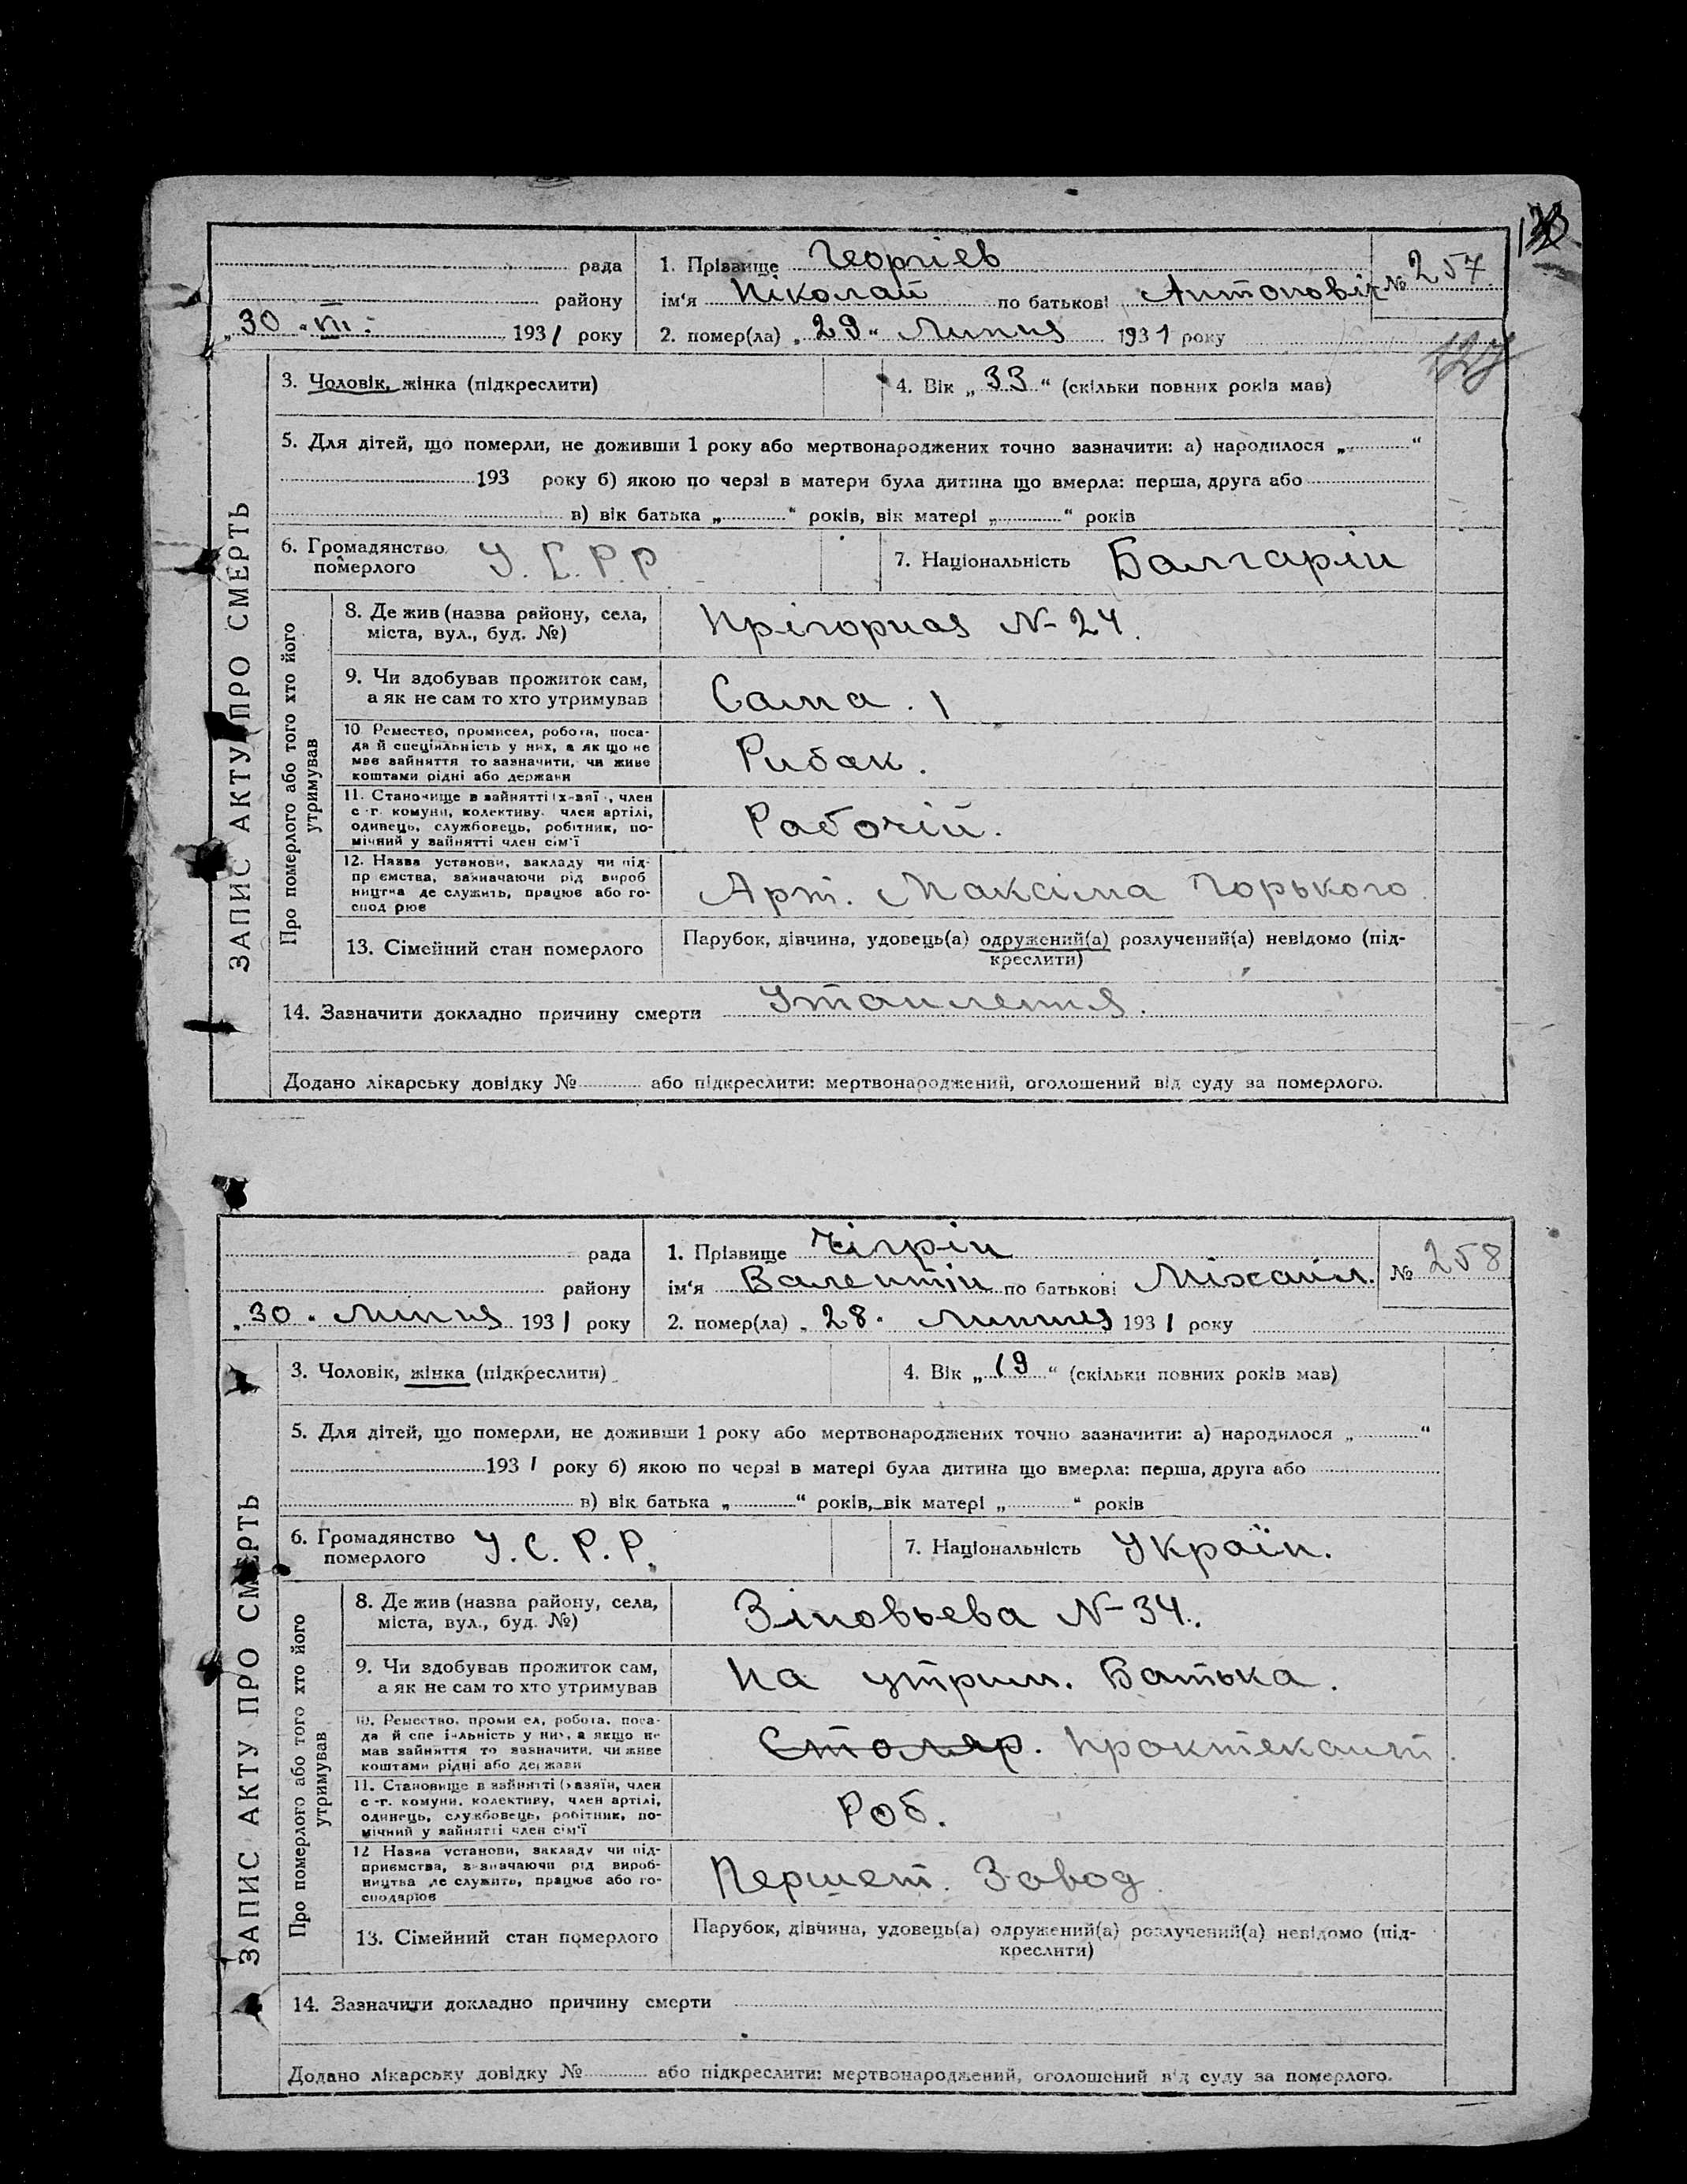 рада
району
„30 " VII - 1931 року
1. Прізвище Георгіев
ім'я Ніколай по батькові Антоновіч
№ 257.
2. помер(ла) „29" Липня 1931 року
127
3. Чоловік, жінка (підкреслити)
4. Вік „33" (скільки повних років мав)
5. Для дітей, що померли, не доживши 1 року або мертвонароджених точно зазначити: а) народилося „ "
193 року б) якою по черзі в матери була дитина що вмерла: перша, друга або
в) вік батька „ " років, вік матері „ " років
6. Громадянство
померлого
У. С. Р. Р.
7. Національність Балгарін
ЗАПИС АКТУ ПРО СМЕРТЬ
Про померлого або того хто його
утримував
8. Де жив (назва району, села,
міста, вул., буд. №)
Прігорная № 24.
9. Чи здобував прожиток сам,
а як не сам то хто утримував
Сама. 1
10 Ремество, промисел, робота, поса-
да й спеціяльність у них, а як що не
мав зайняття то зазначити, чи живе
коштами рідні або держави
Рибак.
11. Становище в зайнятті (х-зяї , член
с -г. комуни, колективу. член артілі,
одинець, службовець, робітник, по-
мічний у зайнятті член сім'ї
Рабочій.
12. Назва установи, закладу чи під-
пр ємства, зазначаючи рід вироб
ництва де служить, працює або го-
спод рює
Арт. Максіма Горького.
13. Сімейний стан померлого
Парубок, дівчина, удовець(а) одружений(а) розлучений(а) невідомо (під-
креслити)
14. Зазначити докладно причину смерти Утоплення.
Додано лікарську довідку № або підкреслити: мертвонароджений, оголошений від суду за померлого.
рада
району
„30 " Липня 1931 року
1. Прізвище Чігрін
ім'я Валентін по батькові Міхайл.
№ 258
2. помер(ла) „28" Липня 1931 року
3. Чоловік, жінка (підкреслити)
4. Вік „19" (скільки повних років мав)
5. Для дітей, що померли, не доживши 1 року або мертвонароджених точно зазначити: а) народилося „ "
1931 року б) якою по черзі в матері була дитина що вмерла: перша, друга або
в) вік батька „ " років, вік матері „ " років
6. Громадянство
померлого
У. С. Р. Р.
7. Національність Україн.
ЗАПИС АКТУ ПРО СМЕРТЬ
Про померлого або того хто його
утримував
8. Де жив (назва району, села,
міста, вул., буд. №)
Зіновьева № 34.
9. Чи здобував прожиток сам,
а як не сам то хто утримував
На утрим. Батька.
10. Ремество, проми ел, робота, поса-
да й спе і-льність у них, а якщо не
мав зайняття то зазначити, чи живе
коштами рідні або держави
Столяр. Практекант.
11. Становище в зайнятті (хазяїн, член
с -г. комуни, колективу, член артілі,
одинець, службовець, робітник, по-
мічний у зайнятті член сім'ї
Роб.
12 Назва установи, закладу чи під-
приємства, зазначаючи рід вироб-
ництва де служить, працює або го-
сподарює
Першет. Завод.
13. Сімейний стан померлого
Парубок, дівчина, удовець(а) одружений(а) розлучений(а) невідомо (під-
креслити)
14. Зазначити докладно причину смерти
Додано лікарську довідку № або підкреслити: мертвонароджений, оголошений від суду за померлого.